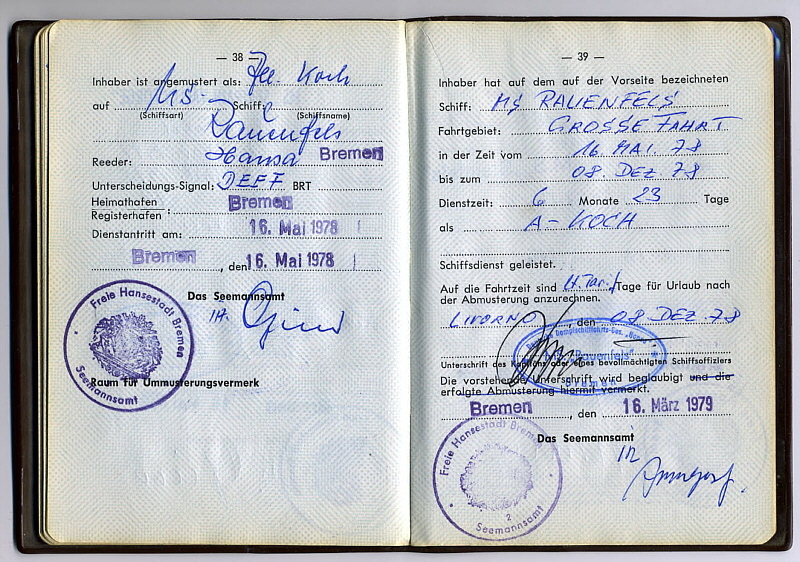 — 38 —
Inhaber ist angemustert als: Koch
auf MS. Schiff
(Schiffsart) (Schiffsname)
Rauenfels
Reeder: Hansa Bremen
Unterscheidungs-Signal: DEFF BRT
Heimathafen
Registerhafen : Bremen
Dienstantritt am: 16. Mai 1978
Bremen, den 16. Mai 1978
Das Seemannsamt
Freie Hansestadt Bremen
Seemannsamt
Raum für Ummusterungsvermerk
— 39 —
Inhaber hat auf dem auf der Vorseite bezeichneten
Schiff: MS RAUENFELS
Fahrtgebiet: GROSSE FAHRT
in der Zeit vom 16 MAI. 78
bis zum 08. DEZ 78
Dienstzeit: 6 Monate 23 Tage
als A-KOCH
Schiffsdienst geleistet.
Auf die Fahrtzeit sind lt. Tarif Tage für Urlaub nach
der Abmusterung anzurechnen.
LIVORNO, den 08 DEZ. 78
"Rauenfels"
Bremen
Unterschrift des Kapitäns oder eines bevollmächtigten Schiffsoffiziers
Die vorstehende Unterschrift wird beglaubigt und die
erfolgte Abmusterung hiermit vermerkt.
Bremen, den 16. März 1979
Das Seemannsamt
Freie Hansestadt Bremen
2
Seemannsamt